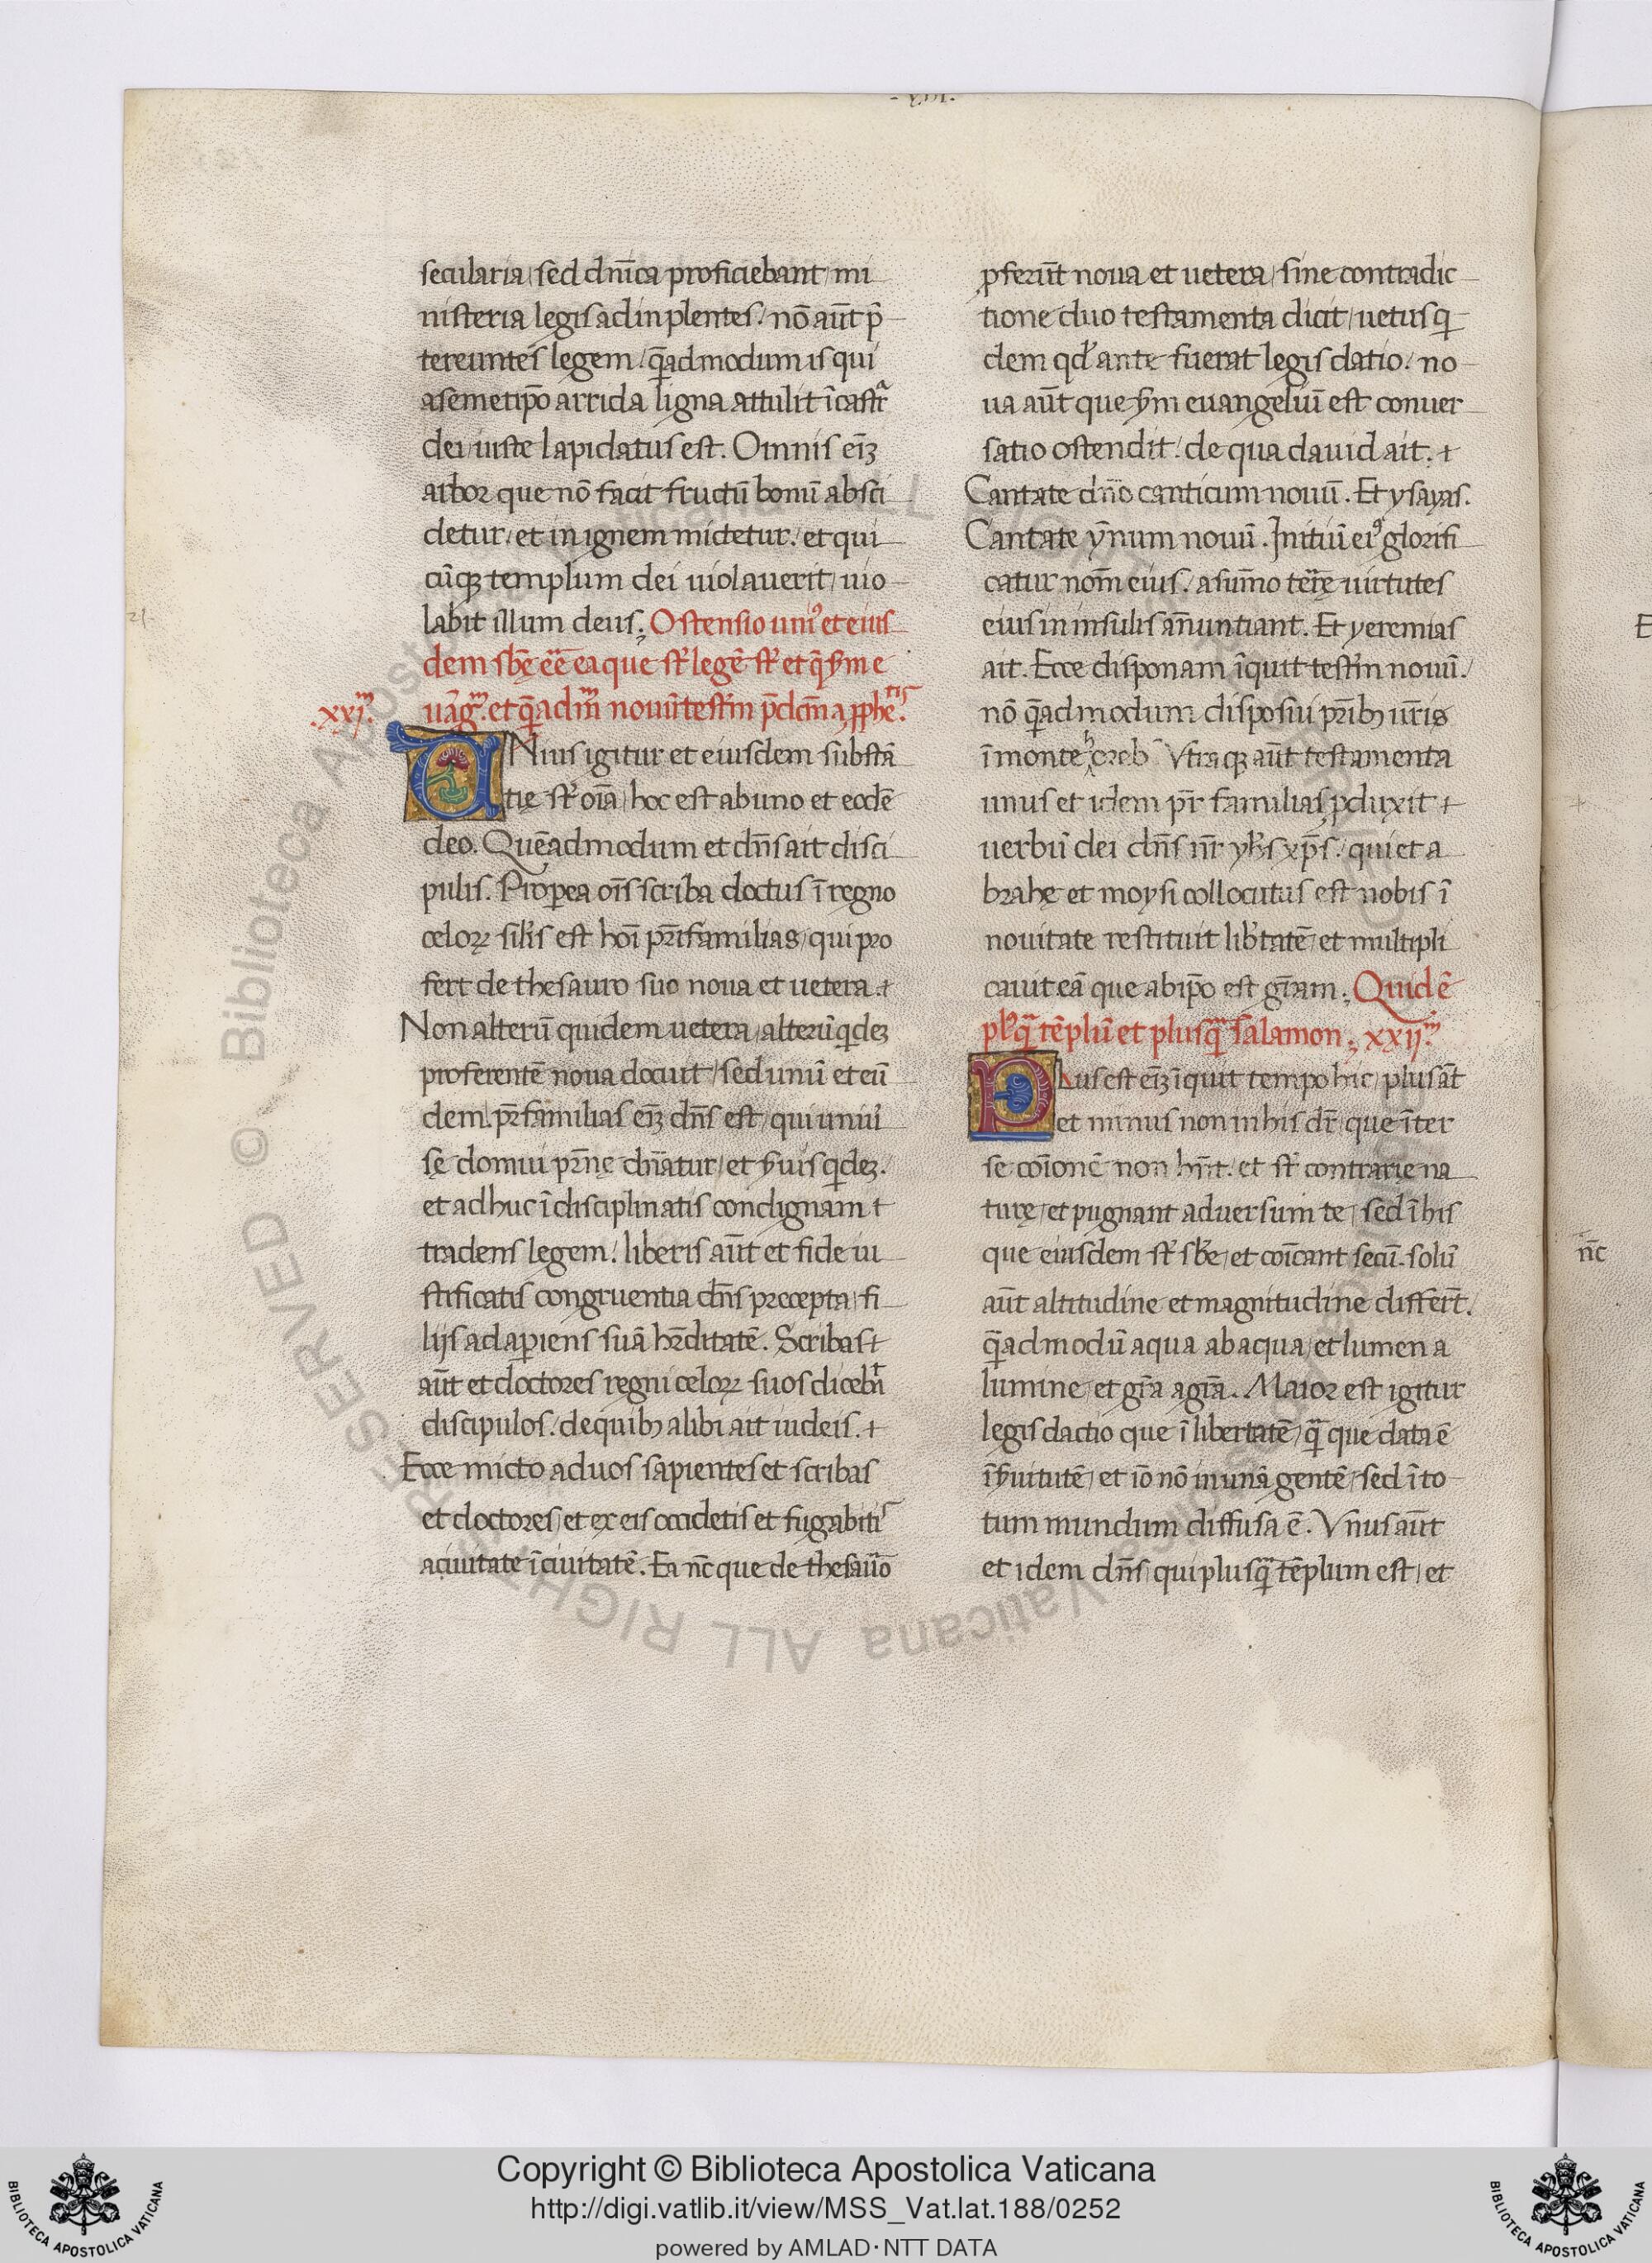 secularia, sed dn̄ica proficiebant, mi
nisteria legis adinplentes. nō aūt p̄
tereuntes legem. q̄admodum is qui
a semetip̄o arrida ligna attulit ī castr̄
dei, iuste lapidatus est. Omnis eīꝫ
arbor que nō facit fructū bonū absci
detur, et in ignem mictetur. et qui
cūqꝫ templum dei uiolauerit, uio
labit illum deus; Ostensio uniꝰ et eius
dem sb̄ę eē̄ ea que st̄ legē st̄ et q̄ s̄m e
.xxj.ᵐ uāg.ᵐ et q̄admᵐ nouū testm̄ p̄dc̄m a ꝓphe.ᵗⁱˢ
UNius igitur et eiusdem substā
tię st̄ oīa, hoc est ab uno et eodē
deo. Quēadmodum et dn̄s ait disci
pulis. Propea oīs scriba doctus ī regno
celoꝝ silīs est hoī pr̄ifamilias, qui pro
fert de thesauro suo noua et uetera.
Non alterū quidem uetera, alterū q̄deꝫ
proferentē noua docuit, sed unū et eū
dem. pr̄familias eīꝫ dn̄s est, qui uniū
sę domui pr̄nę dn̄atur, et s̄uis q̄deꝫ.
et adhuc īdisciplinatis condignam t
tradens legem. liberis aūt et fide iu
stificatis congruentia dn̄s precepta, fi
lijs adaꝑiens suā hr̄ditatē. Scribas
aūt et doctores regni celoꝝ suos diceb̄t
discipulos. de quibꝫ alibi ait iudeis.
Ecce micto ad uos sapientes et scribas
et doctores, et ex eis occidetis et fugabitis
a ciuitate ī ciuitatē. Ea nc̄ que de thesauō
ꝓferūt noua et uetera, sine contradic
tione duo testamenta dicit, uetus q̄
dem qd̄ ante fuerat legis datio. no
ua aūt que s̄m euangeliū est conuer
satio ostendit. de qua dauid ait.
Cantate dn̄o canticum nouū. Et ysayas.
Cantate ȳnum nouū. Initiū eiꝰ glorifi
catur nom̄ eius. a sum̄o ter̄ę uirtutes
eius in insulis an̄untiant. Et yeremias
ait. Ecce disponam īquit testm̄ nouū.
nō q̄admodum disposui pr̄ibꝫ ur̄is
ī monte horeb. Vtraqꝫ aūt testamenta
unus et idem pr̄ familias ꝓduxit
uerbū dei dn̄s nr̄ yh̄s xp̄s. qui et a
brahę et moysi collocutus est nobis ī
nouitate restituit lib̄tatē, et multipli
cauit eā que ab ip̄o est gr̄am; Quid ē
plꝰ q̄ tēplū et plusq̄ salamon; xxij.ᵐ
PLus est eīꝫ īquit tempo hic, plus āt
et minus non in his dr̄, que īter
se coīonē non hn̄t. et st̄ contrarie na
turę, et pugnant aduersum te, sed ī his
que eiusdem st̄ sb̄e, et coīcant secū. solū
aūt altitudine et magnitudine differt̄.
q̄admodū aqua ab aqua, et lumen a
lumine, et gr̄a a gr̄a. Maior est igitur
legis dactio que ī libertatē, q̄ que data ē
ī s̄uitutē, et iō nō in unā gentē, sed ī to
tum mundum diffusa ē. Vnus aūt
et idem dn̄s, qui plusq̄ tēplum est, et
nc̄
Copyright © Biblioteca Apostolica Vaticana
http://digi.vatlib.it/view/MSS_Vat.lat.188/0252
powered by AMLAD·NTT DATA